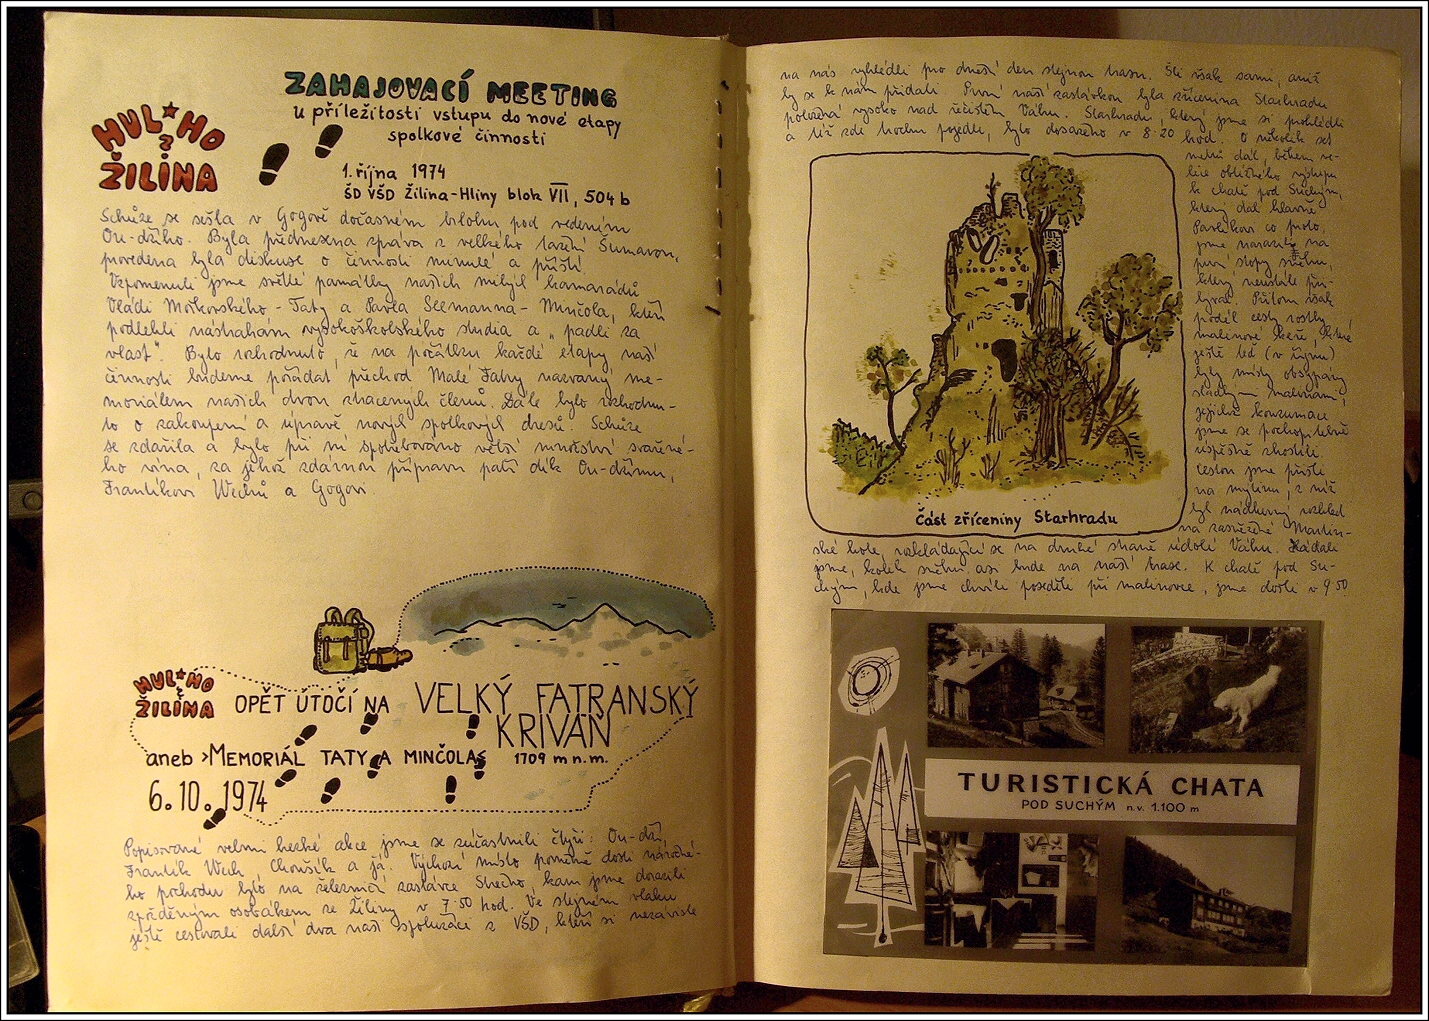 ZAHAJOVACÍ MEETING
u příležitosti vstupu do nové etapy
spolkové činnosti
HUL★HO
2
ŽILINA
1. října 1974
ŠD VŠD Žilina-Hliny blok VII, 504 b
Schůze se sešla v Gogově dočasném brlohu pod vedením
Ou-džiho. Byla přednesena zpráva z velkého tažení Šumavou,
provedena byla diskuse o činnosti minulé a příští.
Vzpomenuli jsme světlé památky našich milých kamarádů
Vládi Moškovského - Taty a Pavla Seemanna - Minčola, kteří
podlehli nástrahám vysokoškolského studia a „padli za
vlast". Bylo rozhodnuto, že na počátku každé etapy naší
činnosti budeme pořádat přechod Malé Fatry nazvaný me-
moriálem našich dvou ztracených členů. Dále bylo rozhodnu-
to o zakoupení a úpravě nových spolkových dresů. Schůze
se zdařila a bylo při ní spotřebováno větší množství svařené-
ho vína, za jehož zdárnou přípravu patří dík Ou-džimu,
Frantíkovi Wechů a Gogovi.
HUL★HO
2
ŽILINA
OPĚT ÚTOČÍ NA VELKÝ FATRANSKÝ
KRIVÁŇ
aneb >MEMORIÁL TATY A MINČOLA< 1709 m n.m.
6.10.1974
Popisované velmi hezké akce jsme se zúčastnili čtyři: Ou-dži,
Frantík Wech, Choušík a já. Výchozí místo poměrně dosti náročné-
ho pochodu bylo na železniční zastávce Strečno, kam jsme dorazili
zpožděným osobákem ze Žiliny v 7.50 hod. Ve stejném vlaku
ještě cestovali další dva naši spolužáci z VŠD, kteří si nezávisle
na nás vyhlédli pro dnešní den stejnou trasu. Šli však sami, aniž
by se k nám přidali. První naší zastávkou byla zřícenina Starhradu
položená vysoko nad řečištěm Váhu. Starhradu, který jsme si prohlédli
a též zde trochu pojedli, bylo dosaženo v 8.20 hod. O několik set
metrů dál, během ve-
lice obtížného výstupu
k chatě pod Suchým,
který dal hlavně
Pavlíkovi co proto,
jsme narazili na
první stopy sněhu,
který neustále při-
býval. Přitom však
podél cesty rostly
malinové keře, které
ještě teď (v říjnu)
byly místy obsypány
sladkými malinami,
jejichž konzumace
jsme se pochopitelně
úspěšně zhostili.
Cestou jsme přišli
na mýtinu, z níž
byl nádherný rozhled
na zasněžené Martin-
ské hole, rozkládající se na druhé straně údolí Váhu. Hádali
jsme, kolik sněhu asi bude na naší trase. K chatě pod Su-
chým, kde jsme chvíli poseděli při malinovce, jsme došli v 9.50
Část zříceniny Starhradu
TURISTICKÁ CHATA
POD SUCHÝM n.v. 1.100 m